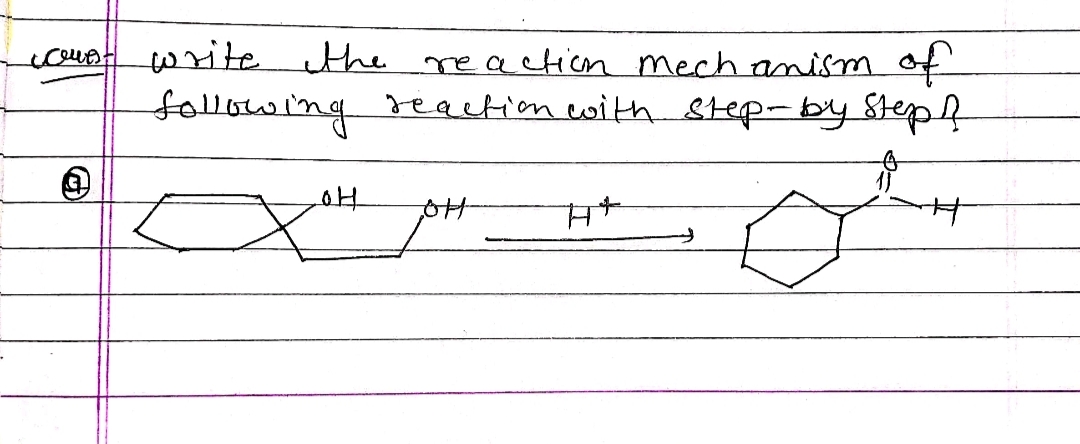 write the reaction mechanism of
following reaction with step-by step?
OH
OH
H+
O
H